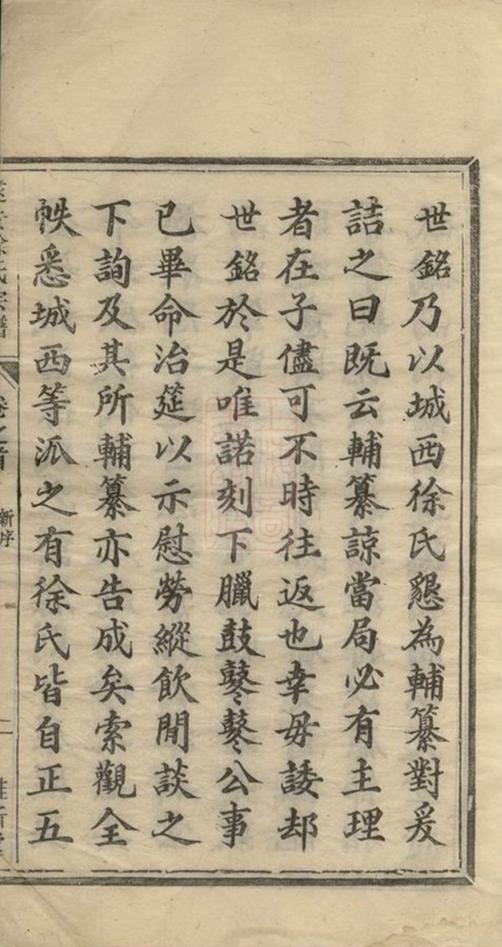 世銘乃以城西徐氏懇為輔纂對爰
詰之曰既云輔纂諒當局必有主理
者在子儘可不時往返也幸毋諉却
世銘於是唯諾刻下臘鼓鼕鼕公事
已畢命治筵以示慰勞縱飲閒談之
下詢及其所輔纂亦告成矣索觀全
帙悉城西等派之有徐氏皆自正五
徐氏宗譜
卷之首
新序
二